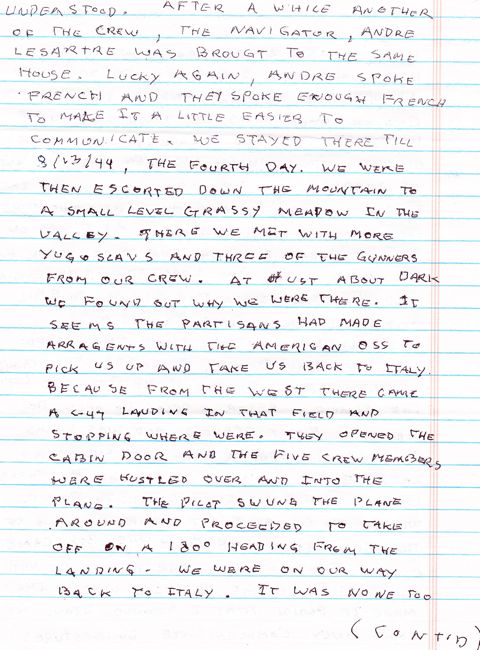 UNDERSTOOD. AFTER A WHILE ANOTHER
OF THE CREW, THE NAVIGATOR, ANDRE
LESARTRE WAS BROUGT TO THE SAME
HOUSE. LUCKY AGAIN, ANDRE SPOKE
FRENCH AND THEY SPOKE ENOUGH FRENCH
TO MAKE IT A LITTLE EASIER TO
COMMUNICATE. WE STAYED THERE TILL
9/13/44, THE FOURTH DAY. WE WERE
THEN ESCORTED DOWN THE MOUNTAIN TO
A SMALL LEVEL GRASSY MEADOW IN THE
VALLEY. THERE WE MET WITH MORE
YUGOSLAVS AND THREE OF THE GUNNERS
FROM OUR CREW. AT UST ABOUT DARK
WE FOUND OUT WHY WE WERE THERE. IT
SEEMS THE PARTISANS HAD MADE
ARRAGENTS WITH THE AMERICAN OSS TO
PICK US UP AND TAKE US BACK TO ITALY.
BECAUSE FROM THE WEST THERE CAME
A C-47 LANDING IN THAT FIELD AND
STOPPING WHERE WERE. THEY OPENED THE
CABIN DOOR AND THE FIVE CREW MEMBERS
WERE HUSTLED OVER AND INTO THE
PLANE. THE PILOT SWUNG THE PLANE
AROUND AND PROCEEDED TO TAKE
OFF ON A 180° HEADING FROM THE
LANDING - WE WERE ON OUR WAY
BACK TO ITALY. IT WAS NONE TOO
(CONT'D)